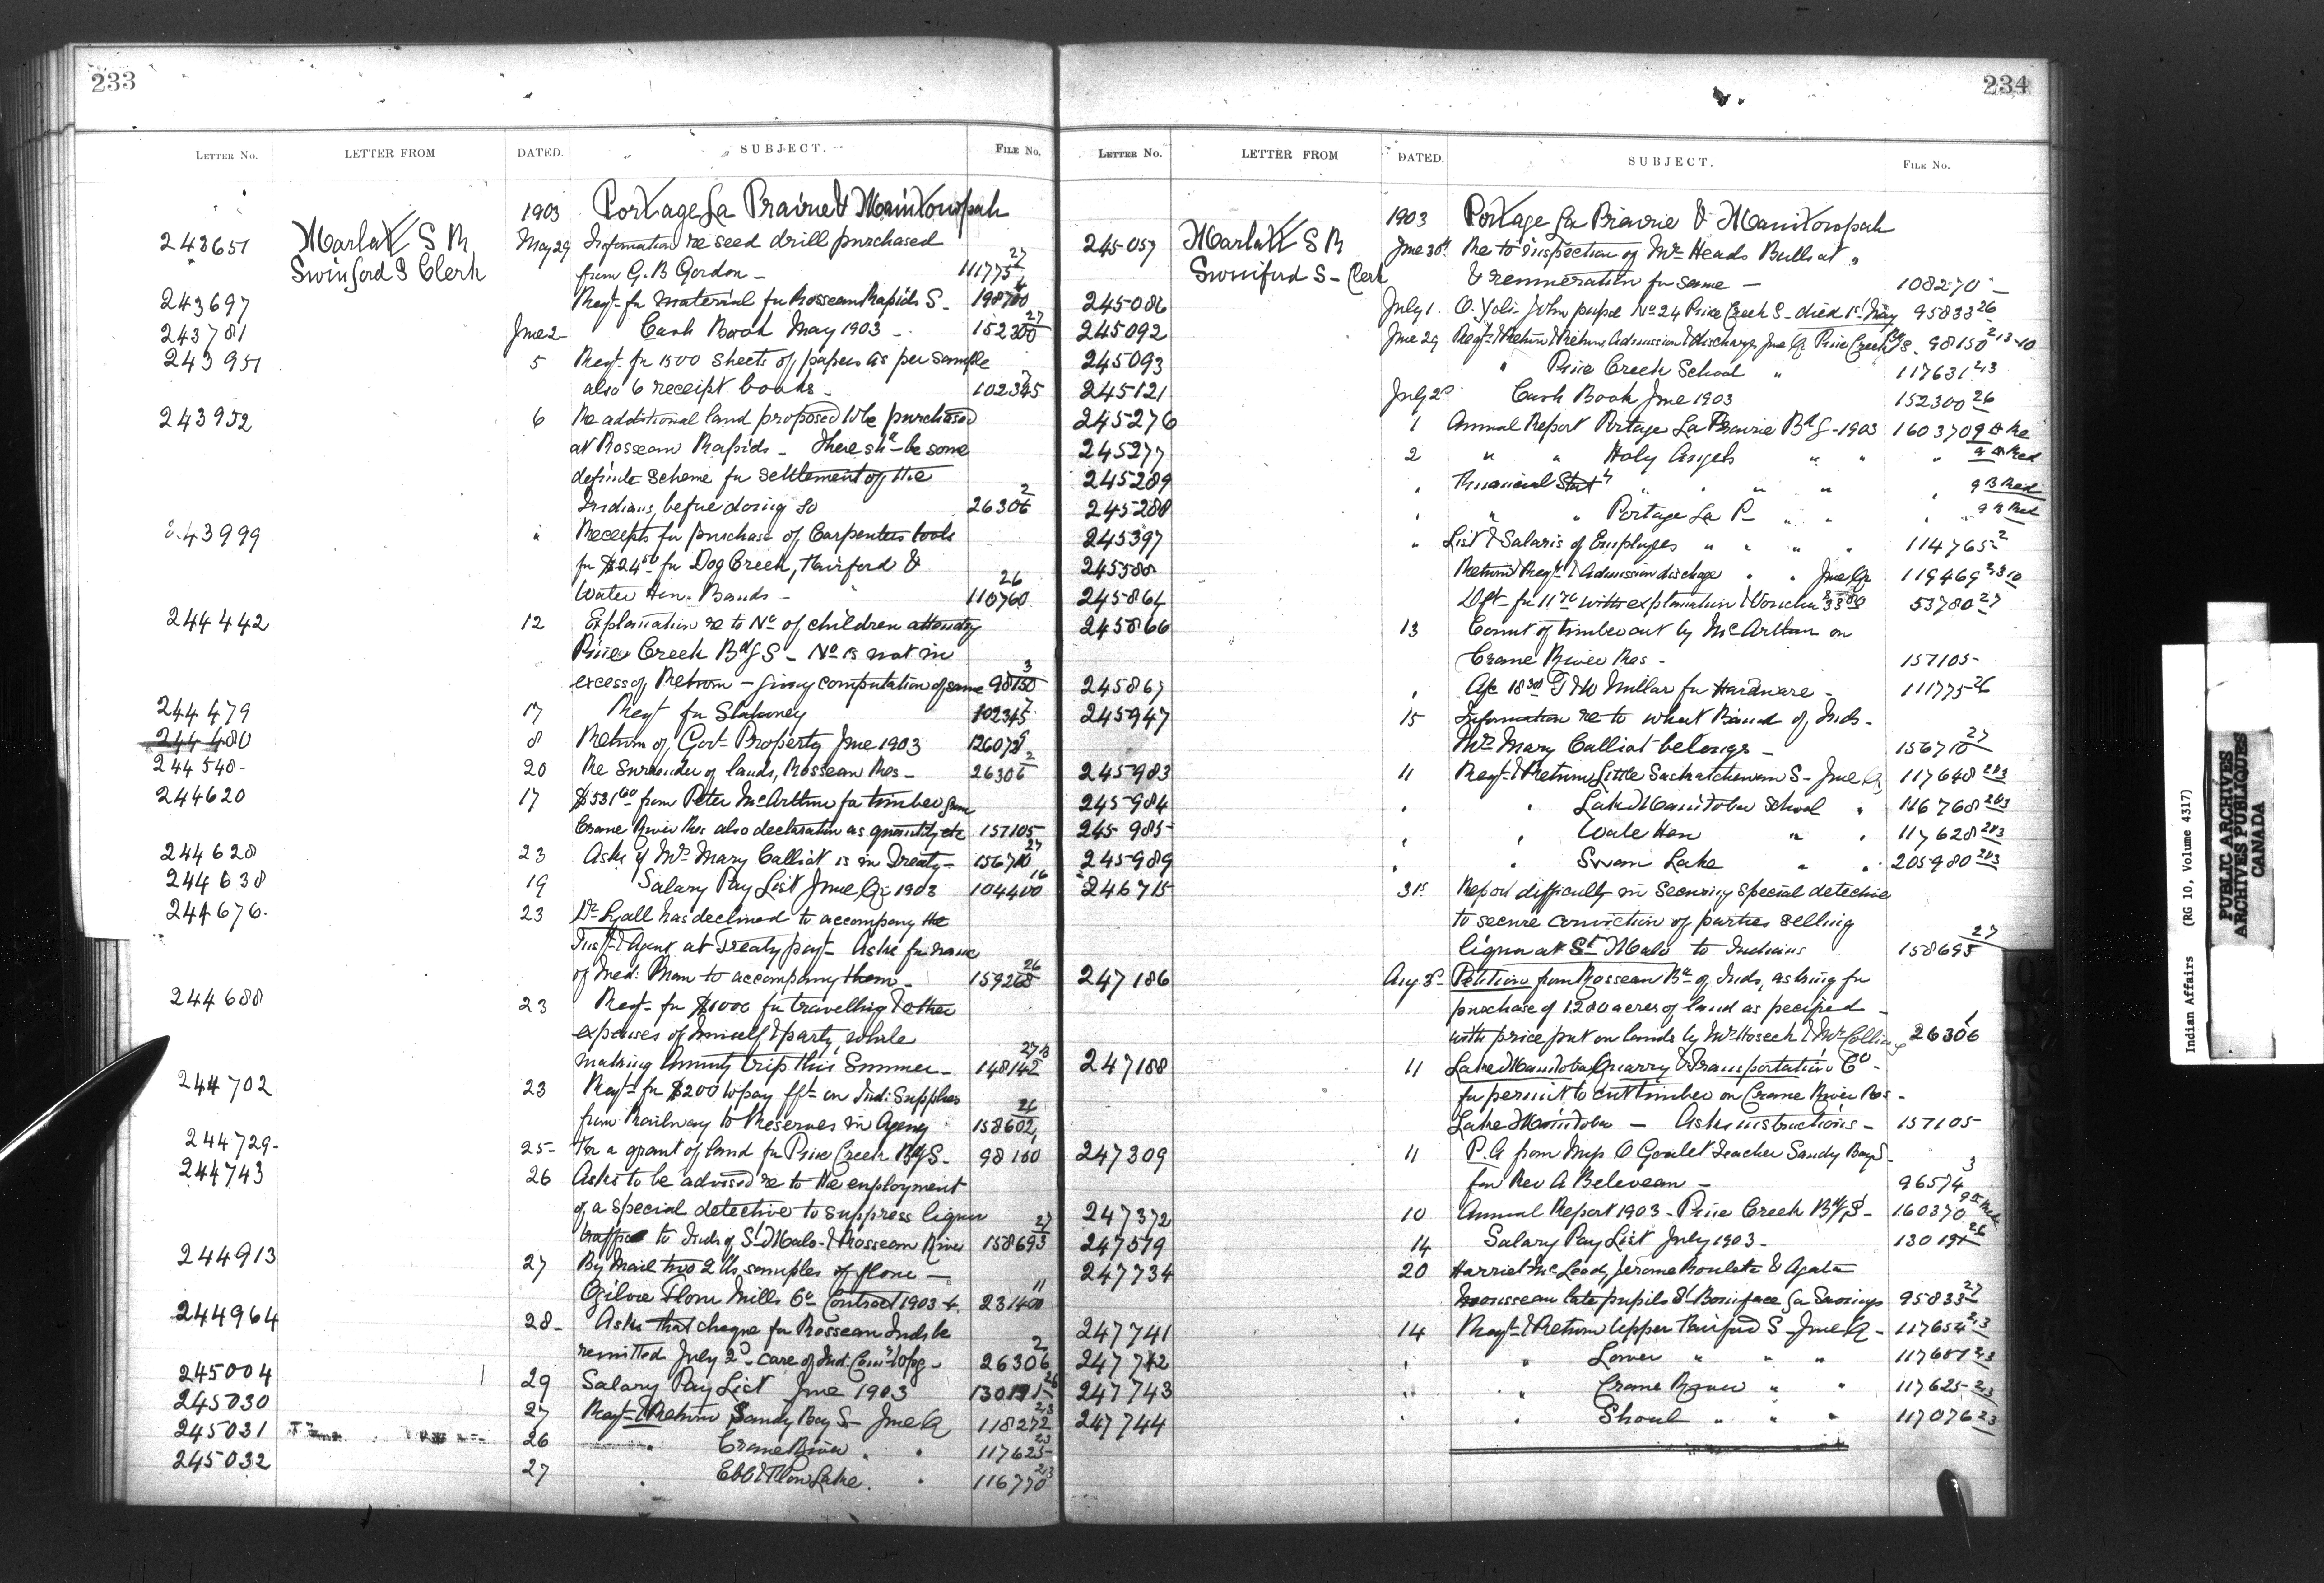 233
LETTER NO. LETTER FROM DATED. SUBJECT. FILE NO.
1903 Portage La Prairie & Manitowapah
243651 Marlatt S R May 29 Information re seed drill purchased
Swinford S Clerk from G. B Gordon - 111775 27
243697 Reqt. for material for Rosseau Rapids S - 198700 4
243781 June 2 Cash Book May 1903 - 152300 27
243951 5 Reqt. for 1500 sheets of paper as per sample
also 6 receipt books - 102345 7
243952 6 Re additional land proposed to be purchased
at Rosseau Rapids - There shd be some
definite scheme for settlement of the
Indians, before doing so 26306 2
243999 " Receipts for purchase of Carpenters tools
for $24 50 for Dog Creek, Fairford &
Water Hen Bands - 110760 26
244442 12 Explanation re to No of children attending
Pine Creek Bdg S - No is not in
excess of Return - giving computation of same 98150 3
244479 17 Reqt for Stationery 102345 7
244480 8 Return of Govt Property June 1903 126072
244548 20 Re Surrender of lands, Rosseau Res - 26306 2
244620 17 $531 60 from Peter McArthur for timber from
Crane River Res also declaration as quantity etc 157105
244628 23 Asks if Mrs Mary Calliot is in Treaty - 156710 27
244638 19 Salary Pay List June Qr 1903 104400 16
244676. 23 Dr Lyall has declined to accompany the
Inspt & Agent at Treaty payt - Asks for name
of Med: Man to accompany them - 159268 26
244688 23 Reqt - for $1000 for travelling & other
expenses of himself & party, while
making Annuity trip this Summer - 148142 27
244702 23 Reqt - for $200 to pay fft - on Ind: Supplies
from Railway to Reserves in Agency 158602 26
244729 - 25 - For a grant of land for Pine Creek Bdg S - 98150 1
244743 26 Asks to be advised re to the employment
of a special detective to suppress liquor
traffic to Inds of St Malo - & Rosseau River 158693 27
244913 27 By Mail two 2 lb samples of flour -
Ogilvie Flour Mills Co Contract 1903-4. 231400 11
244964 28 - Asks that cheque for Rosseau Inds be
remitted July 2d - care of Ind: Comr Wpg - 26306 2
245004 29 Salary Pay List June 1903 130191 26
245030 27 Reqt - & Return Sandy Bay S - June Q 118272 23
245031 26 " Crane River " " 117625 23
245032 27 " Ebb & Flow Lake. " 116770 23
234
LETTER NO. LETTER FROM DATED. SUBJECT. FILE NO.
1903 Portage La Prairie & Manitowapah
245057 Marlatt S R June 30th Re to inspection of Mr Heads Bulls at "
Swinford S - Clerk & remuneration for same - 108270 -
245086 July 1. John pupil No 24 Pine Creek S - died 1st May 95833 26
245092 June 29 Reqt & Return & Return Admission & discharge June Q Pine Creek Bdg S. 98150 2-13-10
245093 " Pine Creek School " 117631 2/3
245121 July 2d Cash Book June 1903 152300 26
245276 1 Annual Report Portage La Prairie Bdg S - 1903 160370
245277 2 " " Holy Angels " " "
245289 " Financial Stat " " " "
245288 " " " Portage La P - " "
245397 " List & Salaris of Employes " " " " 114765 2
245588 Return & Reqt & Admission discharge " " June Qr 119469
245864 Dft - for 11 70 with explanation & Voucher 53780 27
245866 13 Count of timber cut by McArthur on
Crane River Res - 157105 -
245867 " A/c 18 30 G & W Millar for Hardware - 111775 - 26
245947 15 Information re to what Band of Inds -
Mrs Mary Calliot belongs - 156710 27
245983 11 Reqt - & Return Little Saskatchewan S - June Q, 117648 2/3
245984 " " Lake Manitoba School " 116768 2/3
245985 - " " Wate Hen " " 117628 2/3
245989 " " Swan Lake " " 205980 2/3
246715 31st Report difficulty in securing special detective
to secure conviction of parties selling
liquor at St Malo to Indians 158693 27
247186 Aug 3d Petition from Rosseau Bd of Inds, asking for
purchase of 1280 acres of land as
with price put on lands by Mr & Mr Collins 26306 1
247188 11 Lake Manitoba Quarry & Transportation Co -
for permit to cut timber on Crane River Res -
Lake Manitoba - Asks instructions - 157105 -
247309 11 P. A from Miss O Goulet Teacher Sandy Bay S -
for Rev A - 96574 3
247372 10 Annual Report 1903 - Pine Creek Bdg S - 160370
247579 14 Salary Pay List July 1903 - 130191 26
247734 20 Harriet McLeod, Jerome Roulette & Agatha
Mousseau late pupils St Boniface for Savings 95833 27
247741 14 Reqt - & Return Upper Fairford S - June Q - 117654 2/3
247742 " " Lower " " " 117651 2/3
247743 " " Crane River " " 117625 - 2/3
247744 " " Shoal " " " 117076 2/3
Indian Affairs (RG 10, Volume 4317)
PUBLIC ARCHIVES
ARCHIVES PUBLIQUES
CANADA